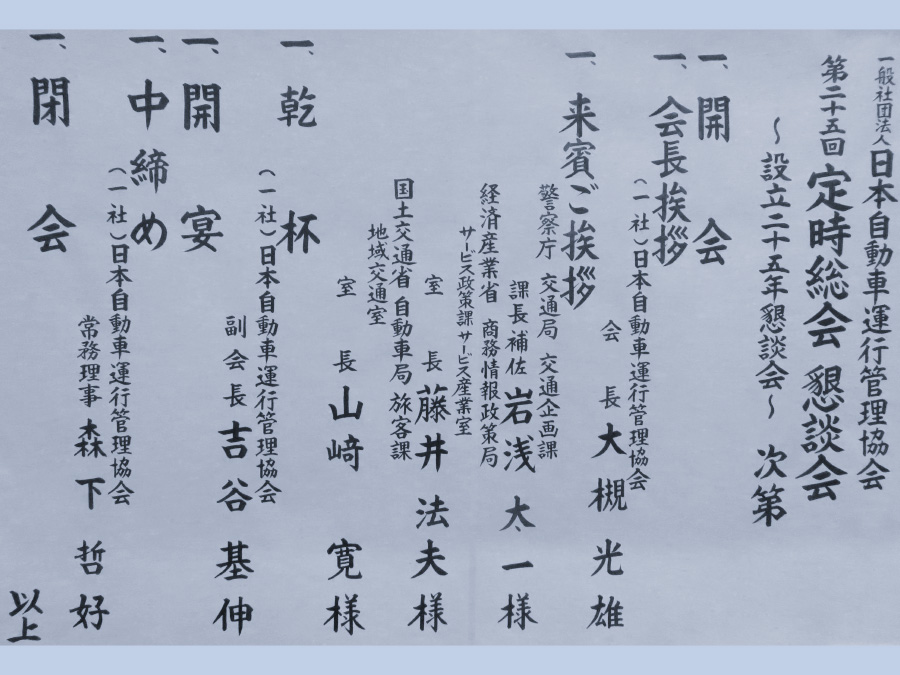 一般社団法人日本自動車運行管理協会
第二十五回 定時総会 懇談会
～設立二十五年懇談会～ 次第
一、開会
一、会長挨拶
(一社)日本自動車運行管理協会
会長 大槻光雄
一、来賓ご挨拶
警察庁 交通局 交通企画課
課長補佐 岩浅太一様
経済産業省 商務情報政策局
サービス政策課 サービス産業室
室長 藤井法夫様
国土交通省 自動車局 旅客課
地域交通室
室長 山﨑寛様
一、乾杯
(一社)日本自動車運行管理協会
副会長 吉谷基伸
一、開宴
一、中締め
(一社)日本自動車運行管理協会
常務理事 森下哲好
一、閉会
以上